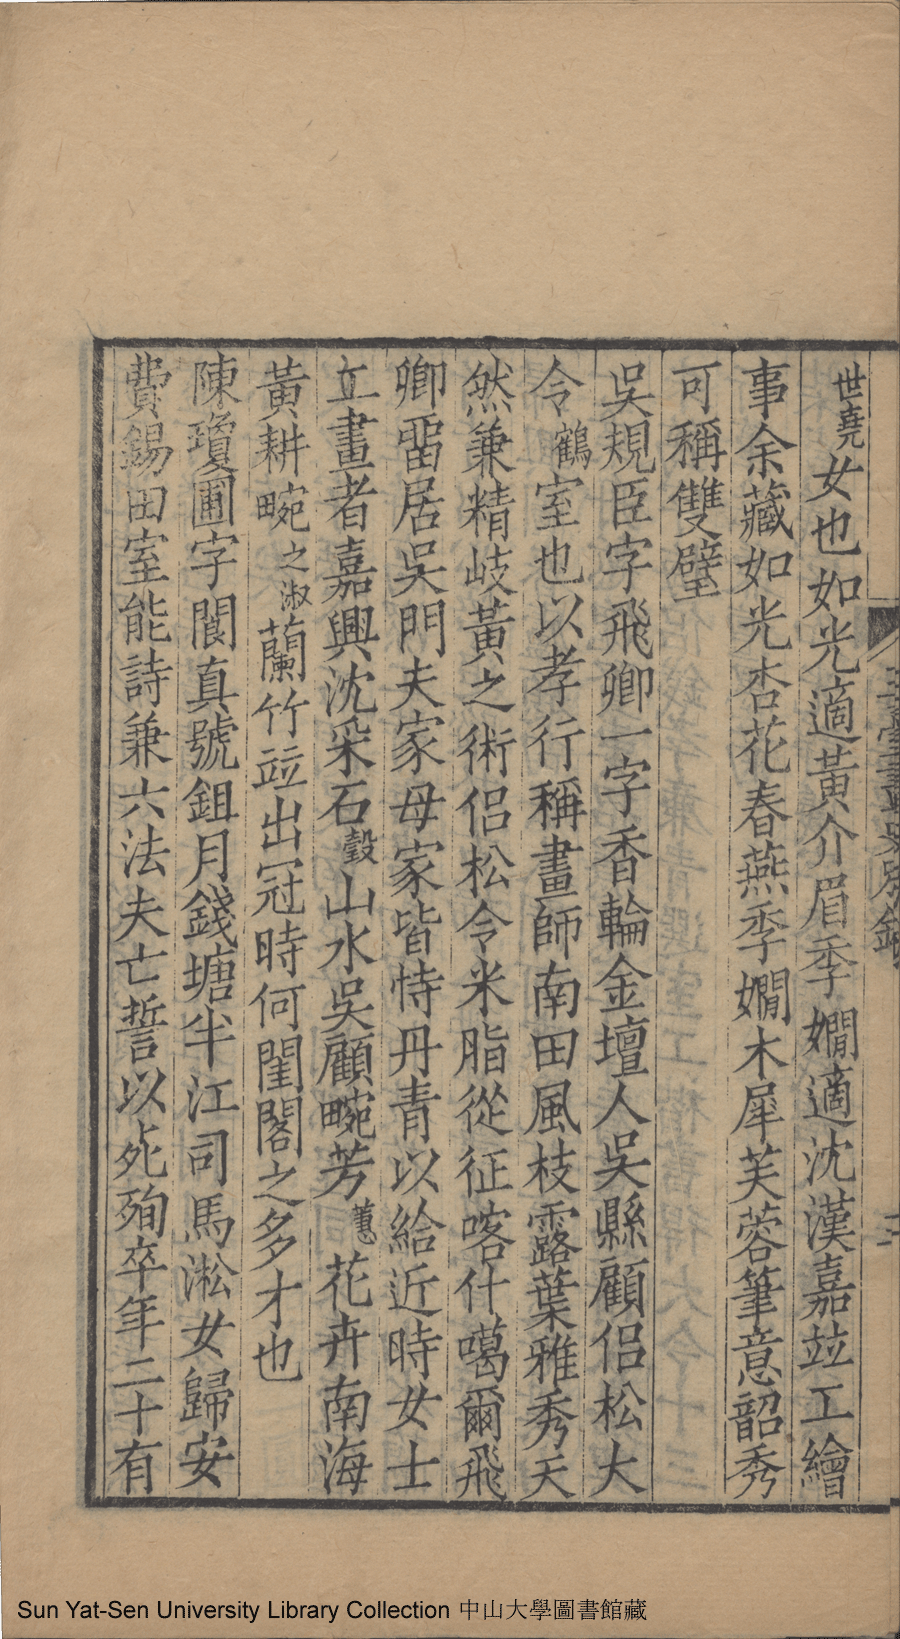 世堯女也如光適黃介眉季嫻適沈漢嘉竝工繪
事余藏如光杏花春燕季嫻木犀芙蓉筆意韶秀
可稱雙璧
吳規臣字飛卿一字香輪金壇人吳縣顧侣松大
令鶴室也以孝行稱畫師南田風枝露葉雅秀天
然兼精岐黃之術侣松令米脂從征喀什噶爾飛
卿畱居吳門夫家母家皆恃丹青以給近時女士
立畫者嘉興沈采石瑴山水吳顧畹芳蕙花卉南海
黃耕畹之淑蘭竹竝出冠時何閨閣之多才也
陳瓊圃字閬真號鉏月錢塘半江司馬淞女歸安
費錫田室能詩兼六法夫亡誓以死殉卒年二十有
玉臺畫史別錄
二
Sun Yat-Sen University Library Collection 中山大學圖書館藏